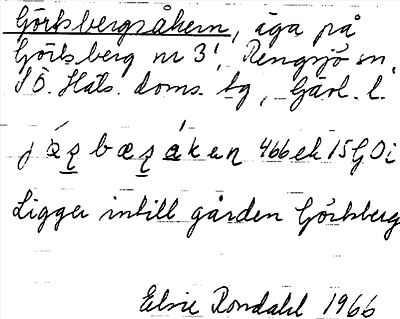 Görtsbergsåkern, äga på
Görtsberg nr 3¹, Rengsjö sn,
S Ö. Häls. doms. tg, Gävl. l.
466 ek 15 G O i
Ligger intill gården Görtsberg
Elsie Rondahl 1966